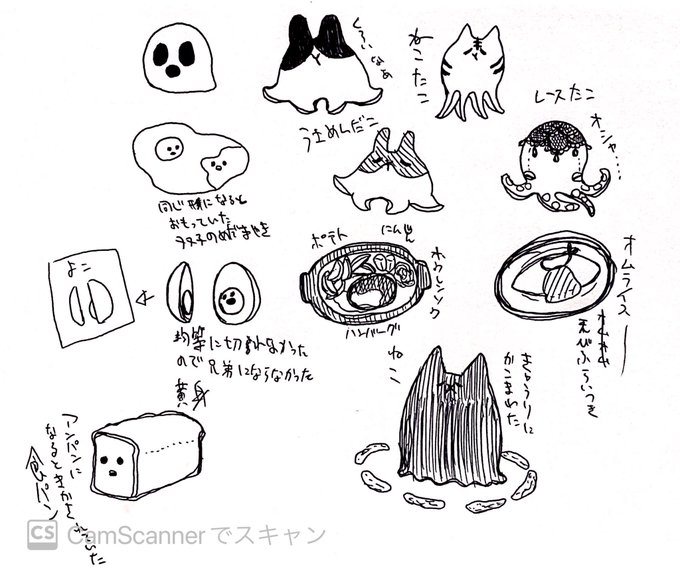 くろい
ねこたこ
レースたこ
オシャ……
同じ顔になると
おもっていた
ふた子のめだまやき
ポテト
にんじん
ホウレンソウ
ハンバーグ
オムライス
えびふらいつき
よこ
均等に切れなかった
ので兄弟にならなかった
黄身
ねこ
きゅうりに
かこまれた
アンパンに
なるときかされていた
食パン
CS CamScannerでスキャン